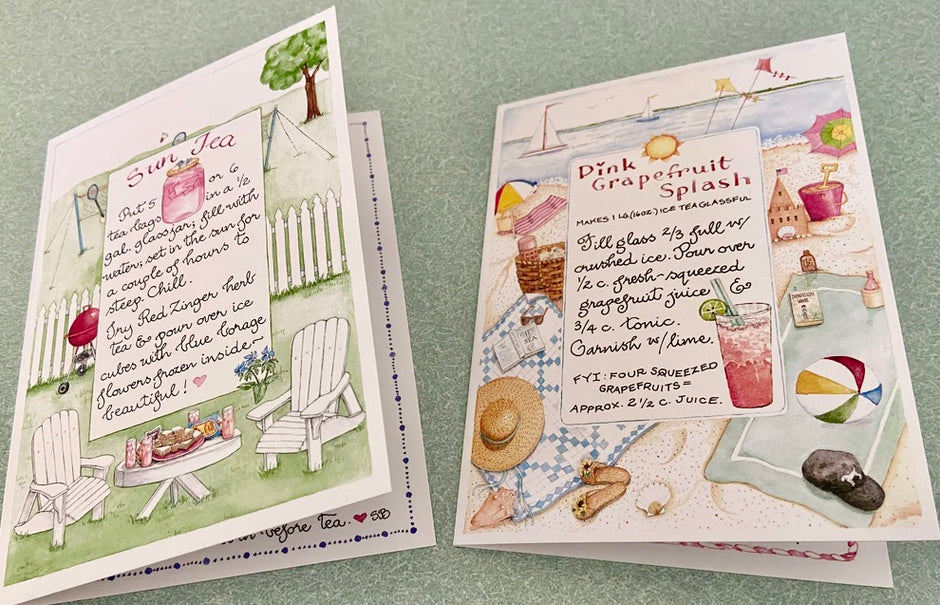 Sun Tea
Put 5 or 6
tea bags in a ½
gal. glass jar; fill with
water; set in the sun for
a couple of hours to
steep. Chill.
Try Red Zinger herb
tea & pour over ice
cubes with blue borage
flowers frozen inside~
beautiful!
before Tea. SB
Dink
Grapefruit
Splash
MAKES 1 LG.(16OZ.) ICE TEAGLASSFUL
Fill glass 2/3 full w/
crushed ice. Pour over
½ c. fresh-squeezed
grapefruit juice &
3/4 c. tonic.
Garnish w/lime.
FYI: FOUR SQUEEZED
GRAPEFRUITS=
APPROX. 2 ½ c. JUICE.
GIFT
SEA
DANDELION
WINE